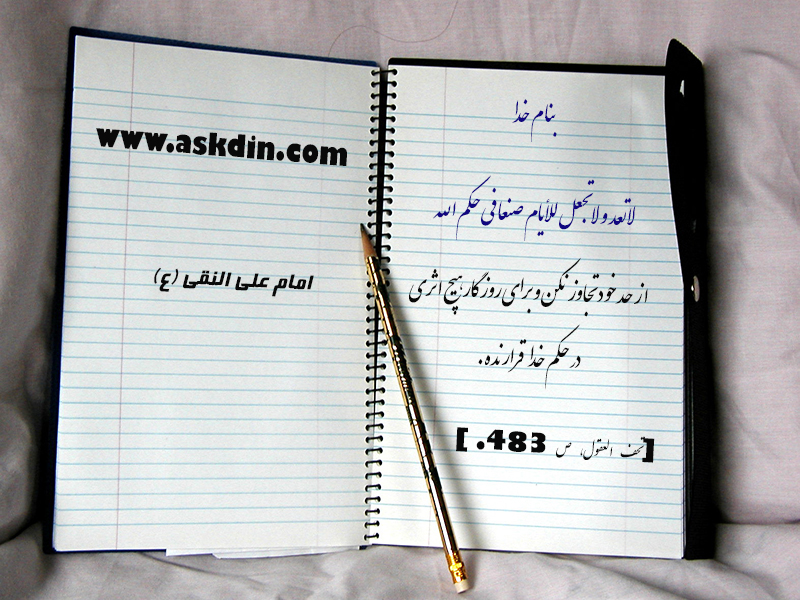 www.askdin.com
امام علی النقی (ع)
بنام خدا
لاتعد ولا تجعل للأیام صنعا فی حکم الله
از حد خود تجاوز نکن و برای روزگار هیچ اثری
در حکم خدا قرار نده.
[تحف العقول، ص 483. ]